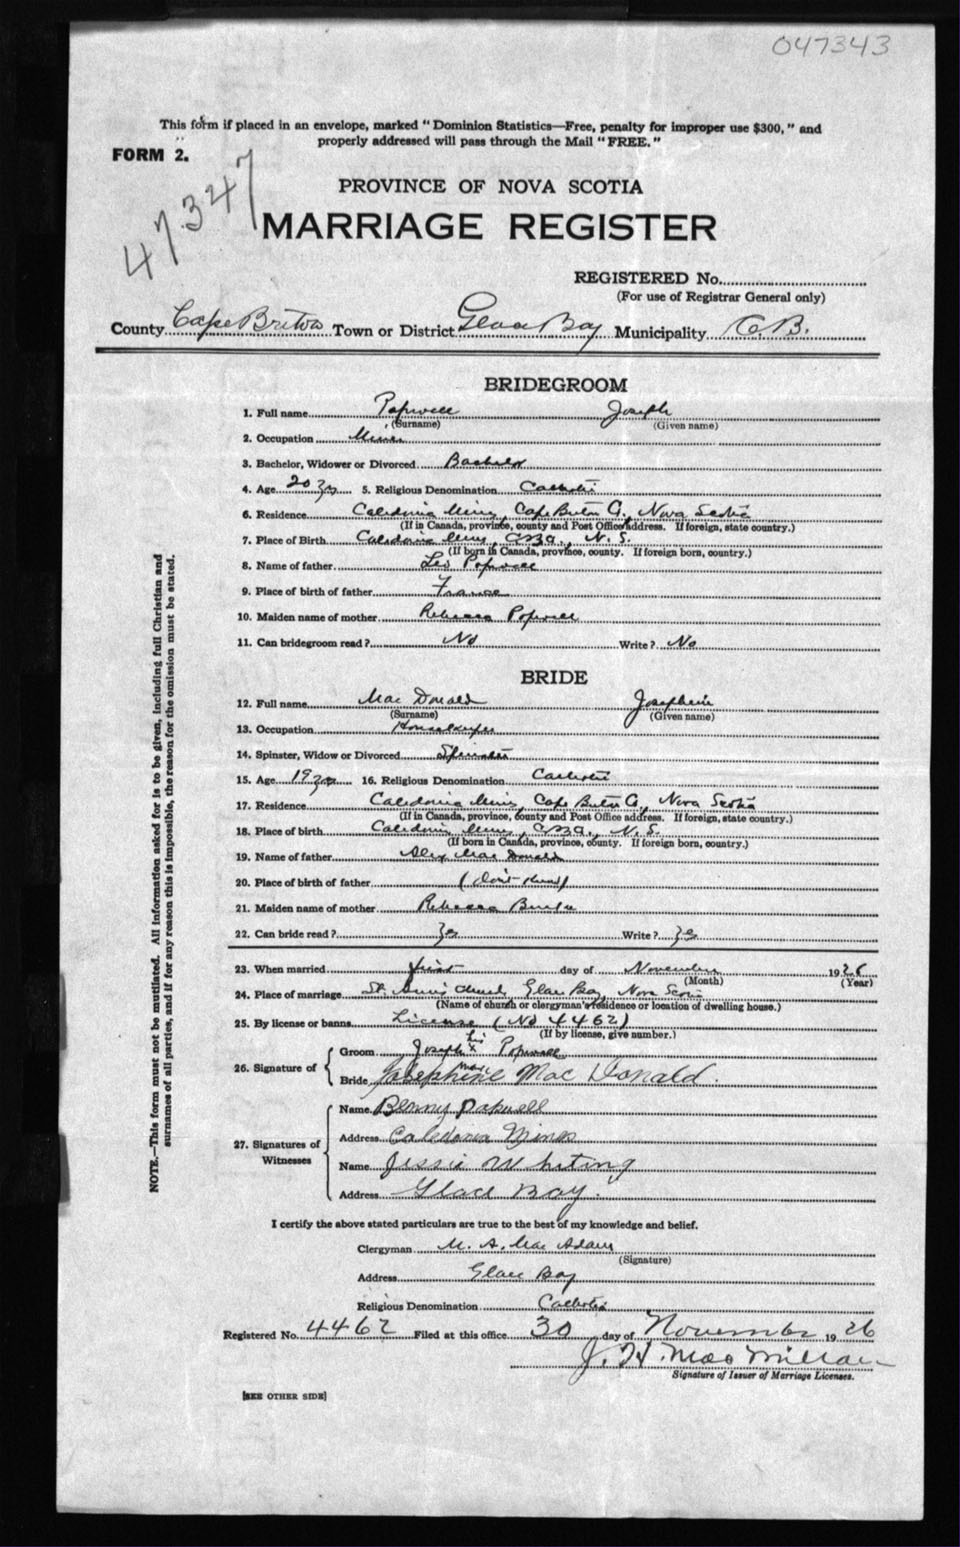 047343
This form if placed in an envelope, marked "Dominion Statistics—Free, penalty for improper use $300," and
properly addressed will pass through the Mail "FREE."
FORM 2.
47347
PROVINCE OF NOVA SCOTIA
MARRIAGE REGISTER
REGISTERED No.
(For use of Registrar General only)
County Cape Breton Town or District Glace Bay Municipality C.B.
BRIDEGROOM
1. Full name Popwell Joseph
(Surname) (Given name)
2. Occupation Miner
3. Bachelor, Widower or Divorced Bachelor
4. Age 20 5. Religious Denomination Catholic
6. Residence Caledonia Mines, Cape Breton Co., Nova Scotia
(If in Canada, province, county and Post Office address. If foreign, state country.)
7. Place of Birth Caledonia Mines, N. S.
(If born in Canada, province, county. If foreign born, country.)
8. Name of father Leo Popwell
9. Place of birth of father France
10. Maiden name of mother Rebecca Popwell
11. Can bridegroom read? No Write? No
BRIDE
12. Full name MacDonald Josephine
(Surname) (Given name)
13. Occupation Housekeeper
14. Spinster, Widow or Divorced Spinster
15. Age 19 16. Religious Denomination Catholic
17. Residence Caledonia Mines, Cape Breton Co., Nova Scotia
(If in Canada, province, county and Post Office address. If foreign, state country.)
18. Place of birth Caledonia Mines, N. S.
(If born in Canada, province, county. If foreign born, country.)
19. Name of father Alex MacDonald
20. Place of birth of father (Don't know)
21. Maiden name of mother Rebecca
22. Can bride read? Yes Write? Yes
23. When married first day of November 1926
(Month) (Year)
24. Place of marriage St. Anne's Church, Glace Bay, Nova Scotia
(Name of church or clergyman's residence or location of dwelling house.)
25. By license or banns License (No 4462)
(If by license, give number.)
26. Signature of
Groom Joseph his x mark Popwell
Bride Josephine MacDonald.
27. Signatures of Witnesses
Name Benny Popwell
Address Caledonia Mines
Name Jessie Whiting
Address Glace Bay.
I certify the above stated particulars are true to the best of my knowledge and belief.
Clergyman M. A. MacAdam
(Signature)
Address Glace Bay
Religious Denomination Catholic
Registered No. 4462 Filed at this office 30 day of November 1926
J. H. MacMillan
Signature of Issuer of Marriage Licenses.
[SEE OTHER SIDE]
NOTE.—This form must not be mutilated. All information asked for is to be given, including full Christian and
surnames of all parties, and if for any reason this is impossible, the reason for the omission must be stated.